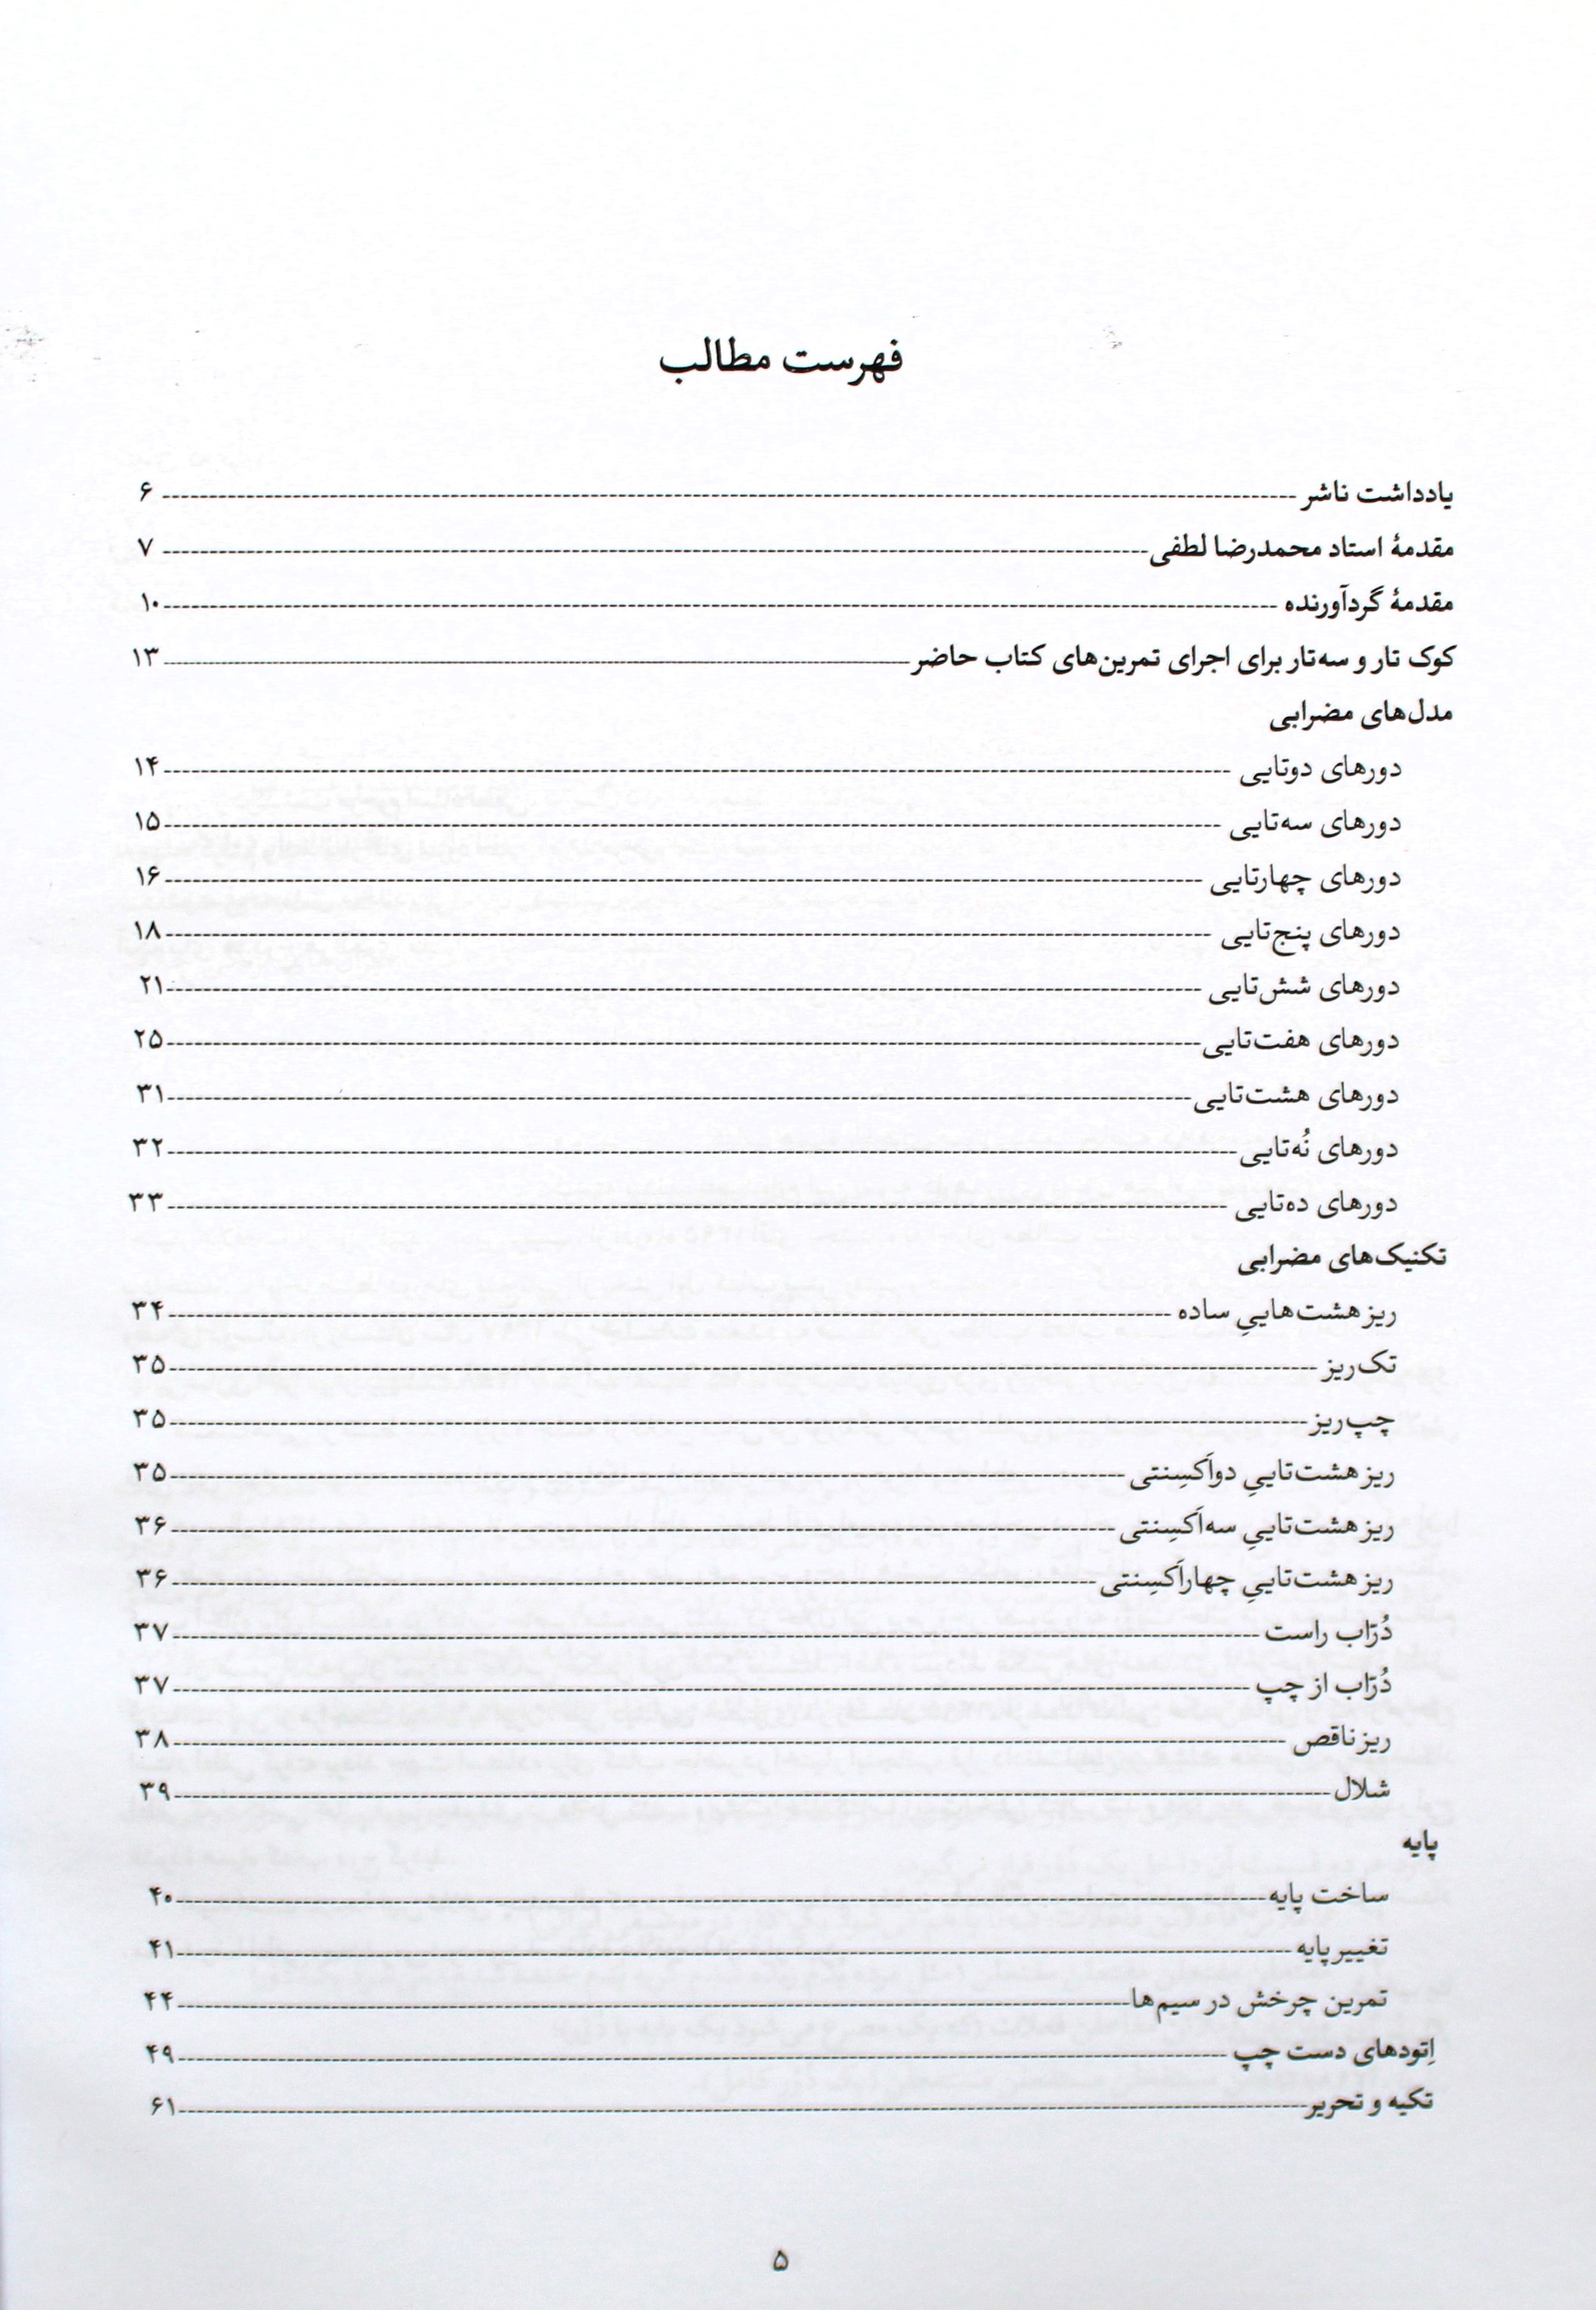 فهرست مطالب
یادداشت ناشر ۶
مقدمهٔ استاد محمدرضا لطفی ۷
مقدمهٔ گردآورنده ۱۰
کوک تار و سه‌تار برای اجرای تمرین‌های کتاب حاضر ۱۳
مدل‌های مضرابی
دورهای دوتایی ۱۴
دورهای سه‌تایی ۱۵
دورهای چهارتایی ۱۶
دورهای پنج‌تایی ۱۸
دورهای شش‌تایی ۲۱
دورهای هفت‌تایی ۲۵
دورهای هشت‌تایی ۳۱
دورهای نُه‌تایی ۳۲
دورهای ده‌تایی ۳۳
تکنیک‌های مضرابی
ریز هشت‌هاییِ ساده ۳۴
تک‌ریز ۳۵
چپ‌ریز ۳۵
ریز هشت‌تاییِ دواَکسِنتی ۳۵
ریز هشت‌تاییِ سه‌اَکسِنتی ۳۶
ریز هشت‌تاییِ چهاراَکسِنتی ۳۶
دُرّاب راست ۳۷
دُرّاب از چپ ۳۷
ریز ناقص ۳۸
شلال ۳۹
پایه
ساخت پایه ۴۰
تغییر پایه ۴۱
تمرین چرخش در سیم‌ها ۴۴
اِتودهای دست چپ ۴۹
تکیه و تحریر ۶۱
۵